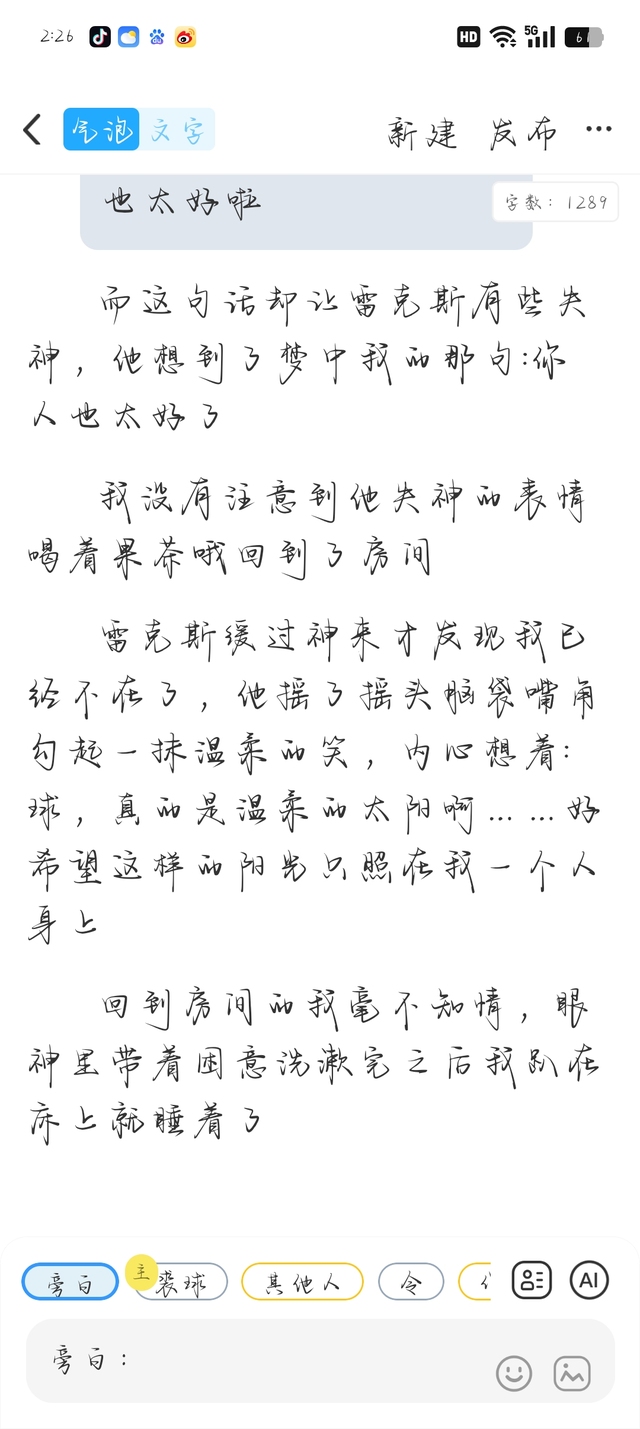 2:26
HD
5G
6
气泡
文字
新建 发布
也太好啦
字数：1289
而这句话却让雷克斯有些失
神，他想到了梦中我的那句:你
人也太好了
我没有注意到他失神的表情
喝着果茶哦回到了房间
雷克斯缓过神来才发现我已
经不在了，他摇了摇头脑袋嘴角
勾起一抹温柔的笑，内心想着:
球，真的是温柔的太阳啊……好
希望这样的阳光只照在我一个人
身上
回到房间的我毫不知情，眼
神里带着困意洗漱完之后我趴在
床上就睡着了
旁白
主
裴球
其他人
令
AI
旁白：